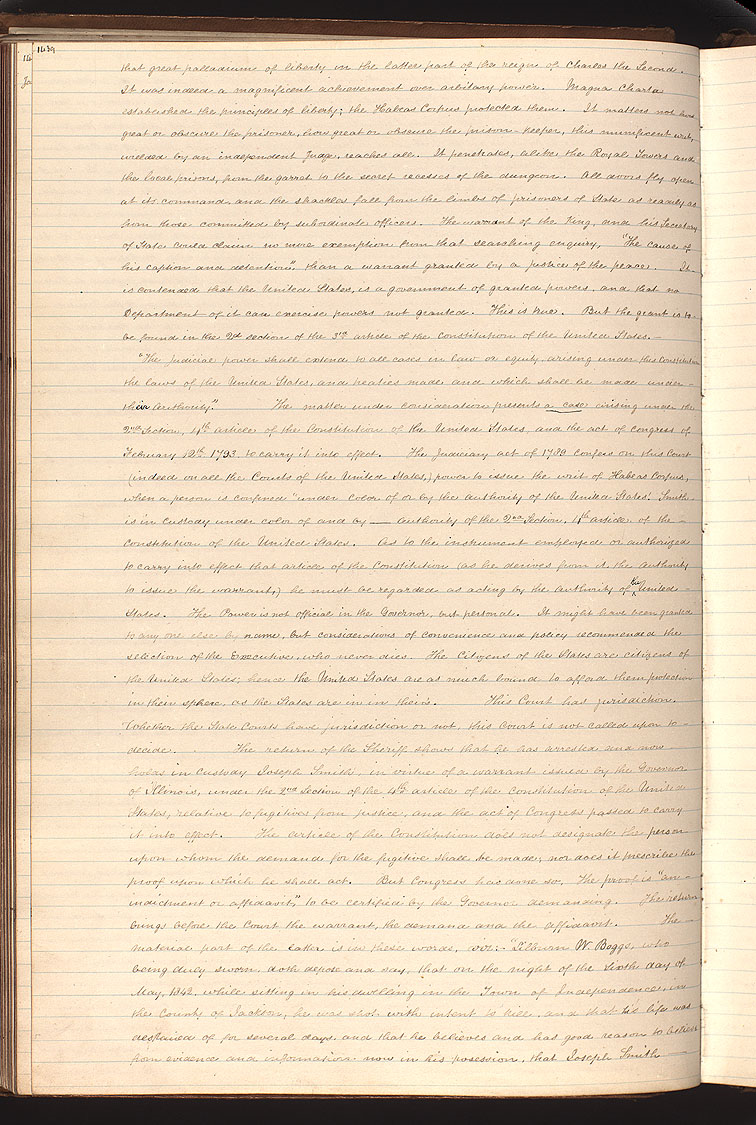 1439
that great palladium of liberty in the latter part of the reign of Charles the Second.
It was indeed a magnificent achievement over arbitrary power. Magna Charta
established the principles of liberty; the Habeas Corpus protected them. It matters not how
great or obscure the prisoner, how great or obscure the prison-keeper, this munificent writ,
wielded by an independent Judge, reaches all. It penetrates, alike the Royal Towers and
the local prisons, from the garret to the secret recesses of the dungeon. All doors fly open
at its command, and the shackles fall from the limbs of prisoners of State as readily as
from those committed by subordinate officers. The warrant of the King, and his Secretary
of State could claim no more exemption from that searching enquiry, "The cause of
his caption and detention", than a warrant granted by a justice of the peace. It
is contended that the United States, is a government of granted powers, and that no
Department of it can exercise powers not granted. This is true. But the grant is to-
be found in the 2nd section of the 3rd article of the Constitution of the United States. -
"The Judicial power shall extend to all cases in law or equity arising under this Constitution
the laws of the United States, and treaties made and which shall be made under-
their authority". The matter under consideration presents a case arising under the
2nd Section, 4th article of the Constitution of the United States, and the act of Congress of
February 12th 1793, to carry it into effect. The Judiciary act of 1789 confers on this Court
(indeed on all the Courts of the United States,) power to issue the writ of Habeas Corpus,
when a person is confined "under color of or by the authority of the United States". Smith-
is in custody under color of and by — authority of the 2nd Section, 4th article of the -
Constitution of the United States. As to the instrument employed or authorized
to carry into effect that article of the Constitution (as he derives from it the authority
to issue the warrant,) he must be regarded as acting by the authority of the United -
States. The Power is not official in the Governor, but personal. It might have been granted
to any one else by name, but considerations of convenience and policy recommended the
selection of the Executive, who never dies. The citizens of the States are citizens of
the United States; hence the United States are as much bound to afford them protection
in their sphere, as the States are in in theirs. This Court has jurisdiction.
Whether the State Courts have jurisdiction or not, this Court is not called upon to -
decide. The return of the Sheriff shows that he has arrested and now
holds in custody Joseph Smith, in virtue of a warrant issued by the Governor
of Illinois, under the 2nd Section of the 4th article of the Constitution of the United
States, relative to fugitives from justice, and the act of Congress passed to carry
it into effect. The article of the Constitution does not designate the person
upon whom the demand for the fugitive shall be made; nor does it prescribe the
proof upon which he shall act. But Congress has done so. The proof is "an-
indictment or affidavit," to be certified by the Governor demanding. The return
brings before the Court the warrant, the demand and the affidavit. The -
material part of the latter is in these words, viz:- "Lilburn W. Boggs, who
being duly sworn, doth depose and say, that on the night of the Sixth day of
May, 1842, while sitting in his dwelling in the Town of Independence, in
the County of Jackson, he was shot with intent to kill, and that his life was
despaired of for several days, and that he believes and has good reason to believe
from evidence and information now in his possession, that Joseph Smith